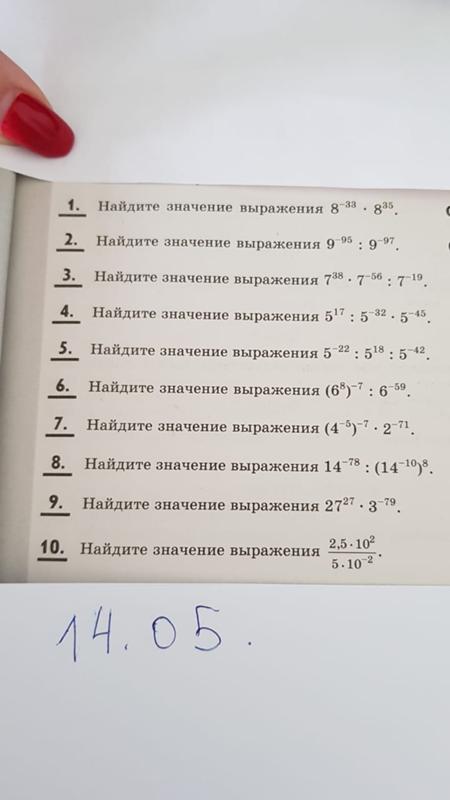 1. Найдите значение выражения 8⁻³³ · 8³⁵.
2. Найдите значение выражения 9⁻⁹⁵ : 9⁻⁹⁷.
3. Найдите значение выражения 7³⁸ · 7⁻⁵⁶ : 7⁻¹⁹.
4. Найдите значение выражения 5¹⁷ : 5⁻³² · 5⁻⁴⁵.
5. Найдите значение выражения 5⁻²² : 5¹⁸ : 5⁻⁴².
6. Найдите значение выражения (6⁸)⁻⁷ : 6⁻⁵⁹.
7. Найдите значение выражения (4⁻⁵)⁻⁷ · 2⁻⁷¹.
8. Найдите значение выражения 14⁻⁷⁸ : (14⁻¹⁰)⁸.
9. Найдите значение выражения 27²⁷ · 3⁻⁷⁹.
10. Найдите значение выражения (2,5·10²)/(5·10⁻²).
14.05.